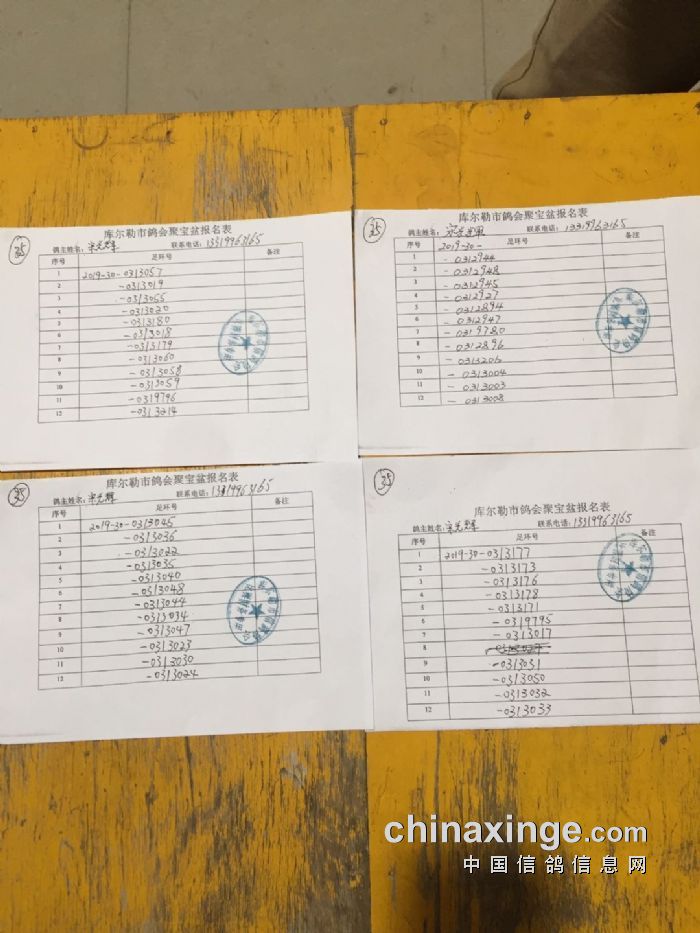 35
库尔勒市鸽会聚宝盆报名表
鸽主姓名：宋光辉 联系电话：13319963165
序号 足环号 备注
1 2019-30-0313057
2 -0313019
3 -0313055
4 -0313020
5 -0313180
6 -0313018
7 -0313179
8 -0313060
9 -0313058
10 -0313059
11 -0319796
12 -0313214
35
库尔勒市鸽会聚宝盆报名表
鸽主姓名： 联系电话：13319963165
序号 足环号 备注
1 2019-30-
2 -0312944
3 -0312948
4 -0312945
5 -0312927
6 -0312894
7 -0312947
8 -0319780
9 -0312896
10 -0313206
11 -0313004
12 -0313003
-0313008
35
库尔勒市鸽会聚宝盆报名表
鸽主姓名：宋光辉 联系电话：13319963165
序号 足环号 备注
1 2019-30-0313045
2 -0313036
3 -0313022
4 -0313035
5 -0313040
6 -0313048
7 -0313044
8 -0313034
9 -0313047
10 -0313023
11 -0313030
12 -0313024
35
库尔勒市鸽会聚宝盆报名表
鸽主姓名：宋光辉 联系电话：13319963165
序号 足环号 备注
1 2019-30-0313177
2 -0313173
3 -0313176
4 -0313178
5 -0313171
6 -0319795
7 -0313017
8
9 -0313031
10 -0313050
11 -0313032
12 -0313033
chinaxinge.com
中国信鸽信息网